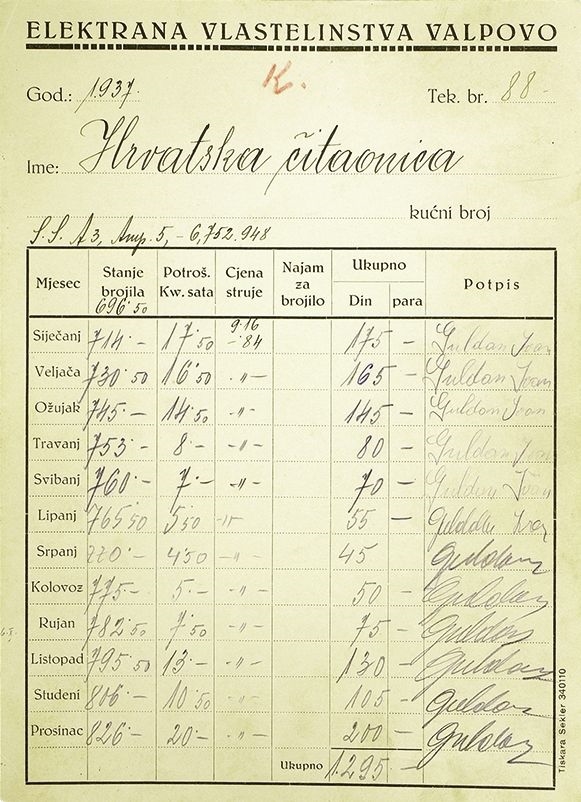 ELEKTRANA VLASTELINSTVA VALPOVO
K.
God.: 1937. Tek. br. 88-
Ime: Hrvatska čitaonica
kućni broj
S.S. A3, Amp. 5, - 6,752.948
Mjesec Stanje brojila Potroš. Kw. sata Cjena struje Najam za brojilo Ukupno Din para Potpis
696·50
Siječanj 714·- 17·50 9·16 -·84 175 - Guldan Ivan
Veljača 730·50 16·50 -"- 165 - Guldan Ivan
Ožujak 745·- 14·50 -"- 145 - Guldan Ivan
Travanj 753·- 8·- -"- 80 - Guldan Ivan
Svibanj 760·- 7·- -"- 70 - Guldan Ivan
Lipanj 765·50 5·50 -"- 55 - Guldan Ivan
Srpanj 770·- 4·50 -"- 45 Guldan
Kolovoz 775·- 5·- -"- 50 - Guldan
Rujan 782·50 7·50 -"- 75 - Guldan
Listopad 795·50 13·- -"- 130 - Guldan
Studeni 806·- 10·50 -"- 105 - Guldan
Prosinac 826·- 20·- -"- 200 - Guldan
Ukupno 1.295·-
Tiskara Sekler 340110